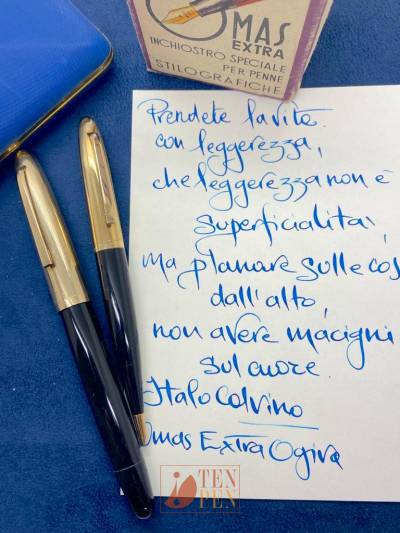 OMAS
EXTRA
INCHIOSTRO SPECIALE
PER PENNE
STILOGRAFICHE
Prendete la vita
con leggerezza,
che leggerezza non è
superficialità,
ma planare sulle cos
dall'alto,
non avere macigni
sul cuore.
Italo Calvino
Omas Extra Ogiva
TEN
PEN